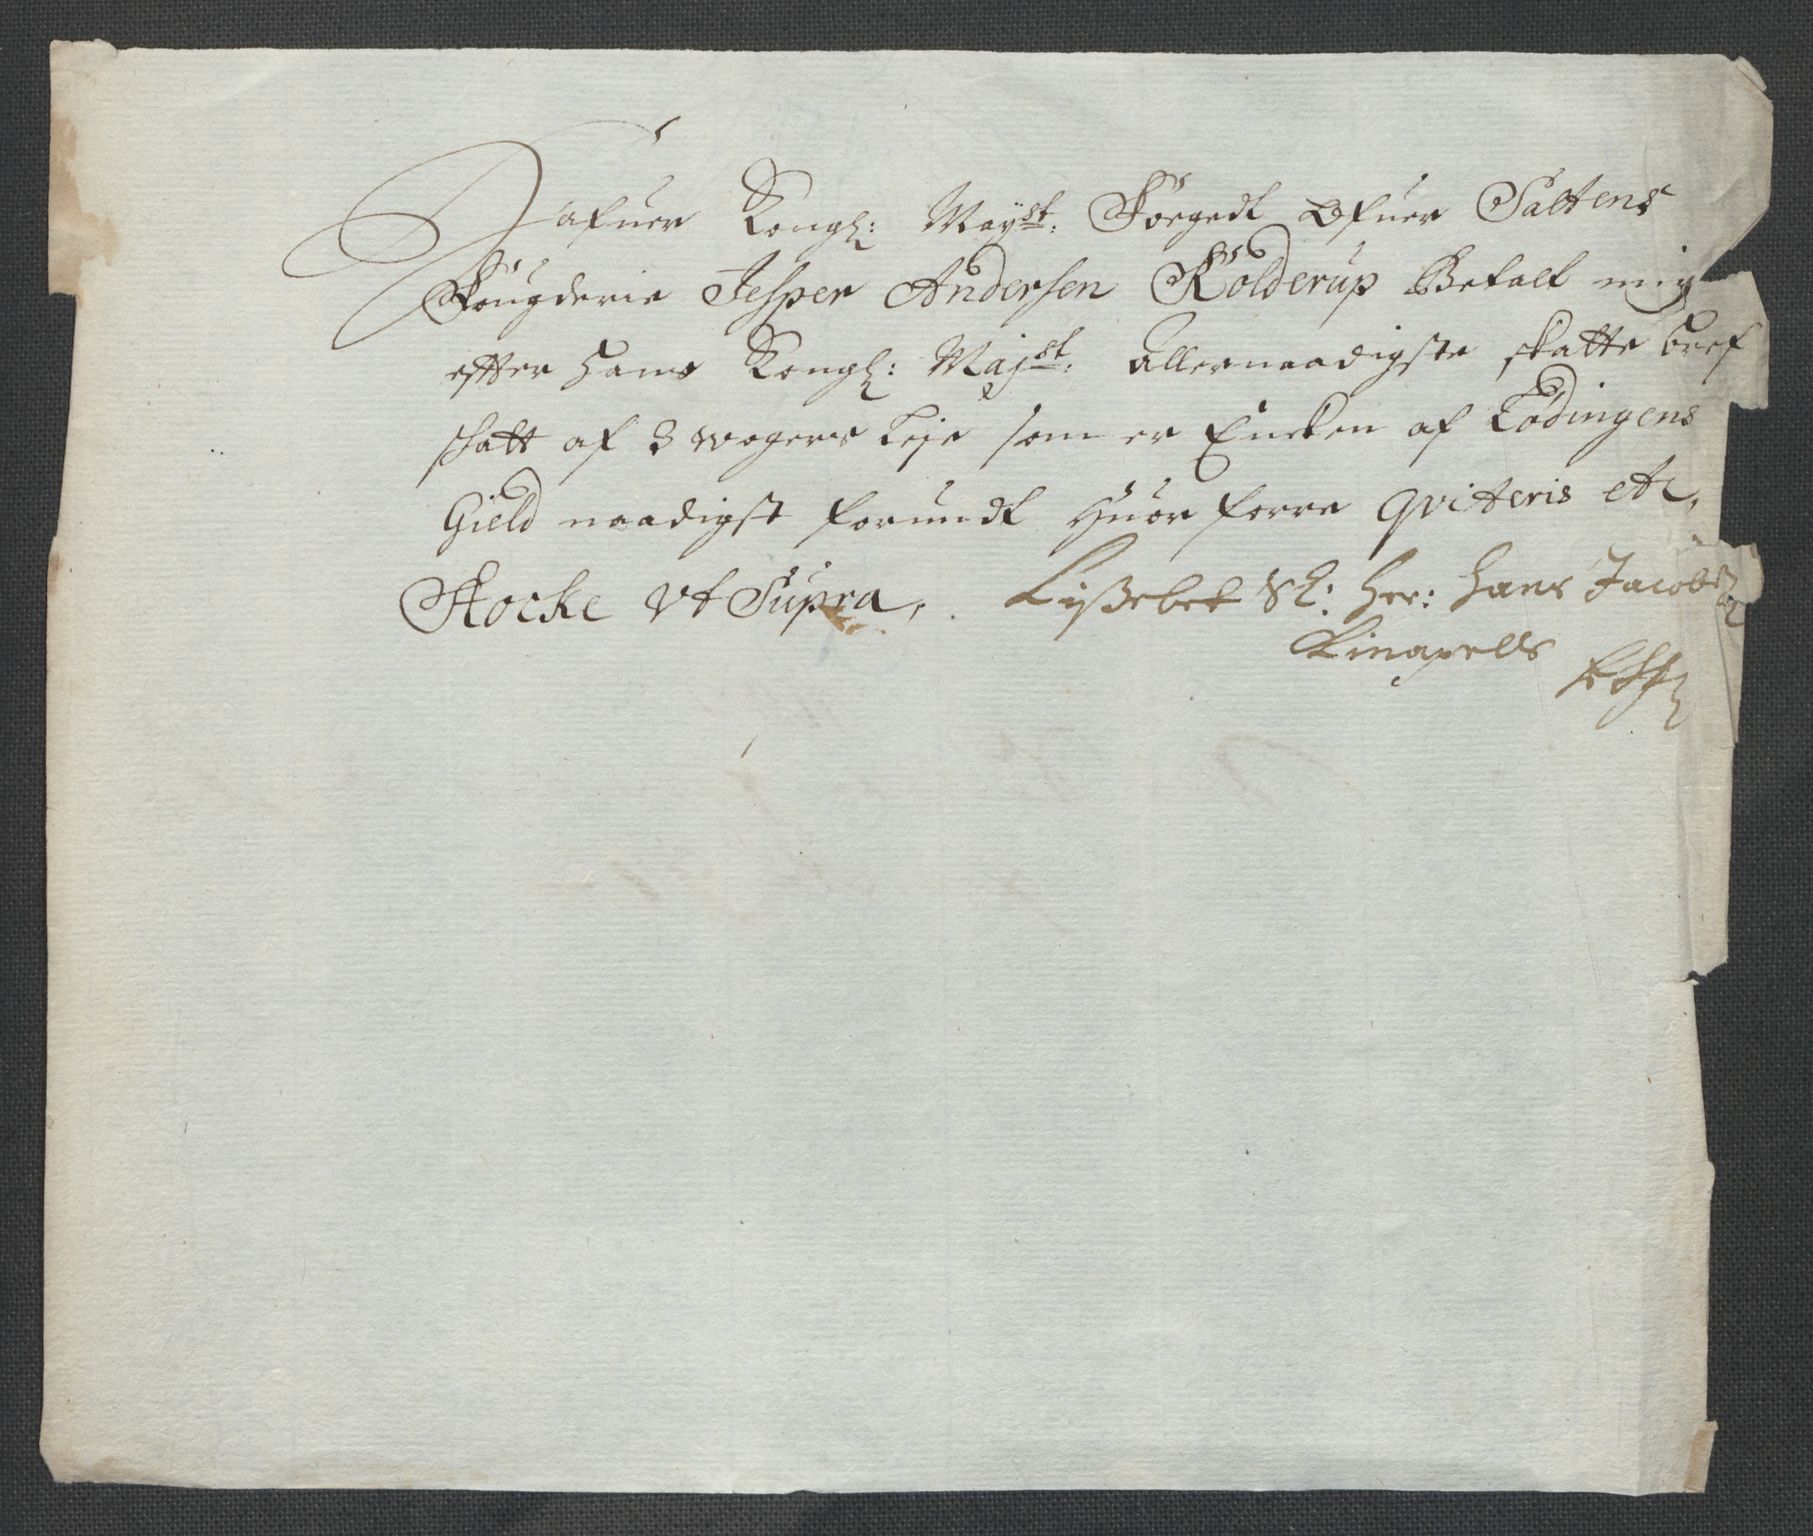 Hafuer Kongl: Mayst: Foegedt Ofuer Saltens
Fougderie Jesper Andersen Kolderup Betalt mig
effter Hans Kongl: Majst: allernaadigste skatte bref
skatt af 3 wogers Leje som er Encken af Lødingens
Gield naadigst forundt Huor forre qviteris etc,
Stocke Vt Supra, Lißebet Sl: Her: Hans Jacobs